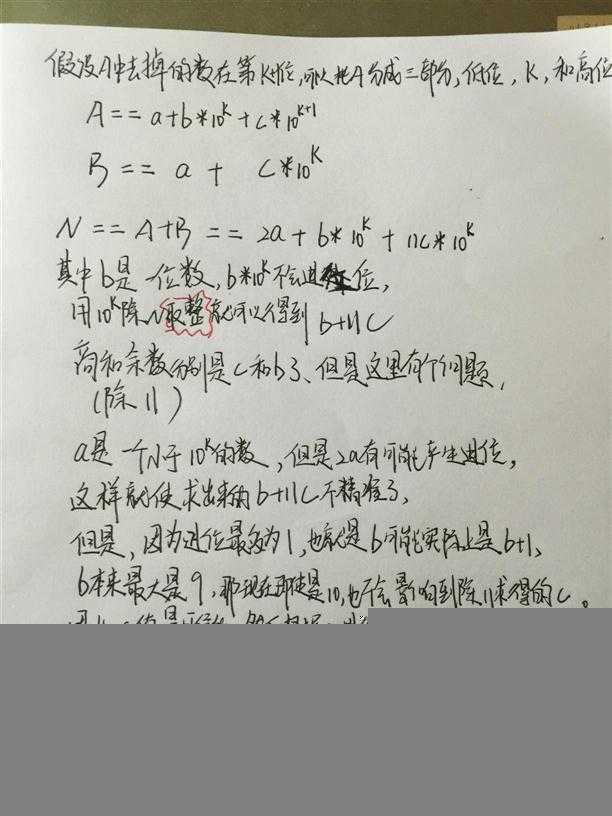 假设A中去掉的数在第K+1位,可以把A分成三部分,低位,K,和高位
A == a+b*10^K+c*10^(K+1)
B == a + c*10^K
N == A+B == 2a+b*10^K+11c*10^K
其中b是一位数,b*10^K不会进位,
用10^K除N取整就可以得到b+11C
商和余数分别是c和b了、但是这里有个问题,
(除11)
a是一个小于10^K的数,但是2a有可能产生进位,
这样就使求出来的b+11C不精准了,
但是,因为进位最多为1,也就是b可能实际上是b+1、
b本来最大是9,那现在即使是10,也不会影响到除11求得的C。